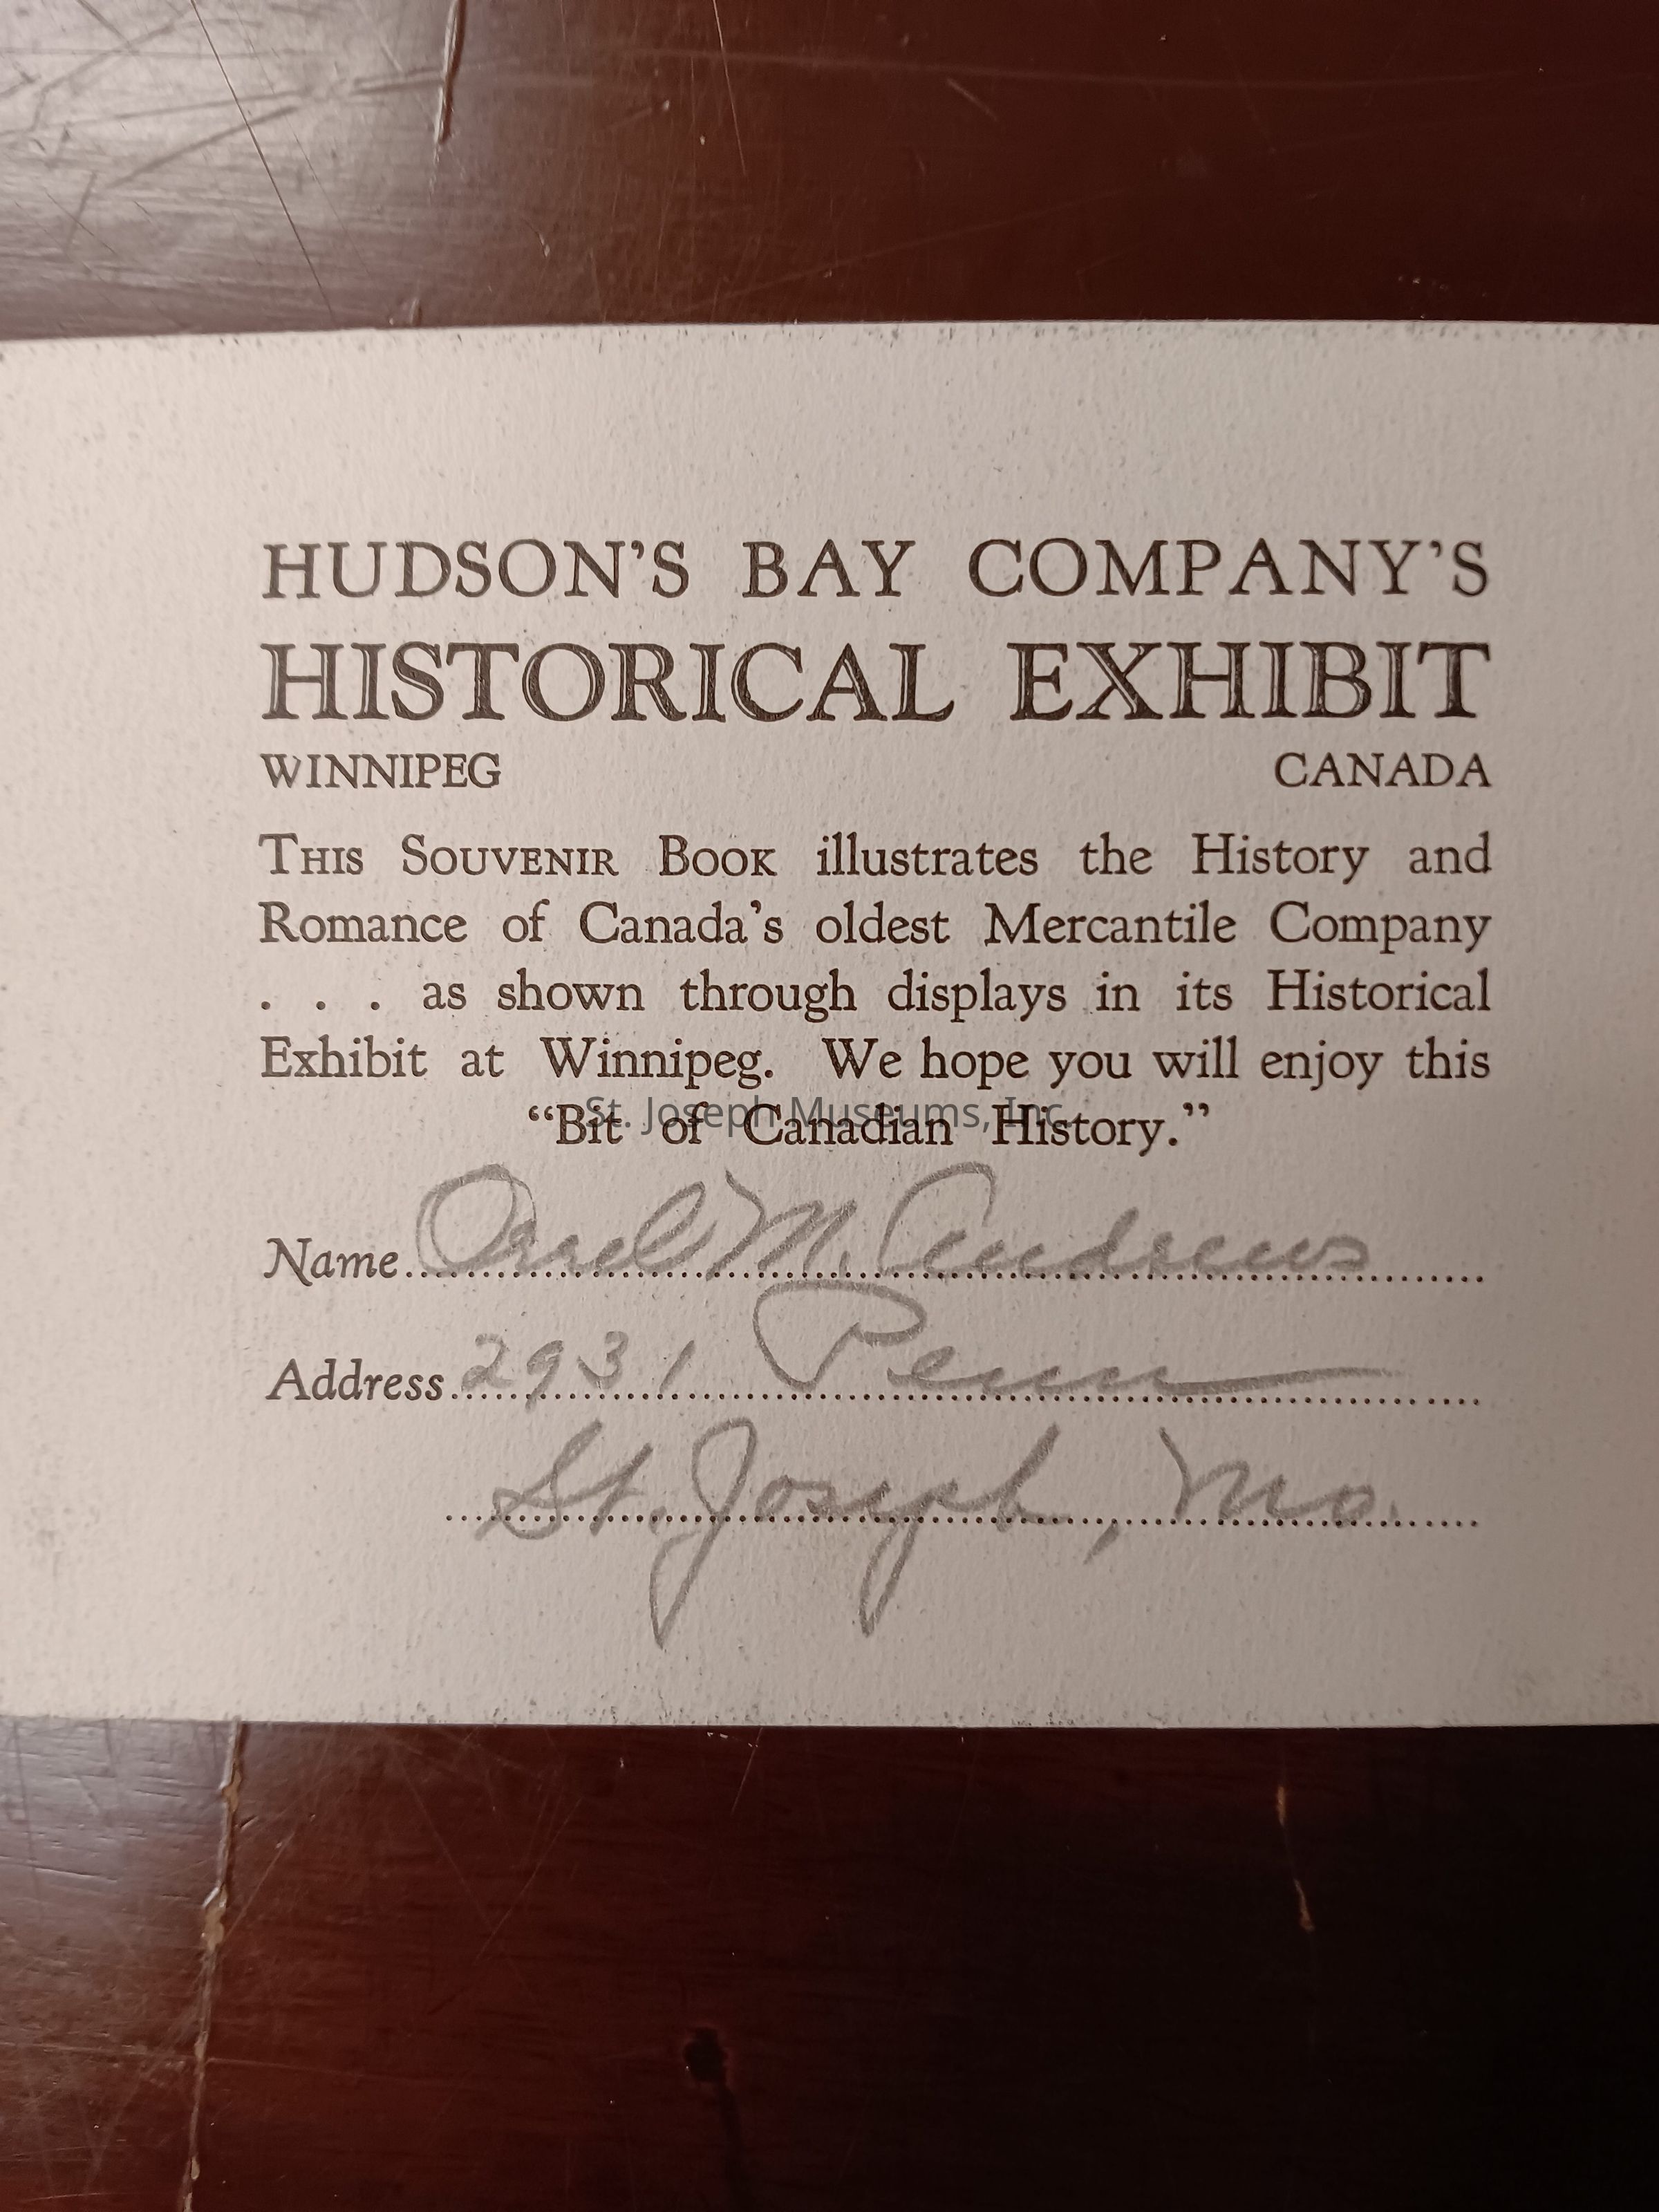 HUDSON'S BAY COMPANY'S
HISTORICAL EXHIBIT
WINNIPEG CANADA
THIS SOUVENIR BOOK illustrates the History and
Romance of Canada's oldest Mercantile Company
. . . as shown through displays in its Historical
Exhibit at Winnipeg. We hope you will enjoy this
"Bit of Canadian History."
St. Joseph Museums, Inc.
Name M. Andrews
Address 2931 Penn
St. Joseph, Mo.